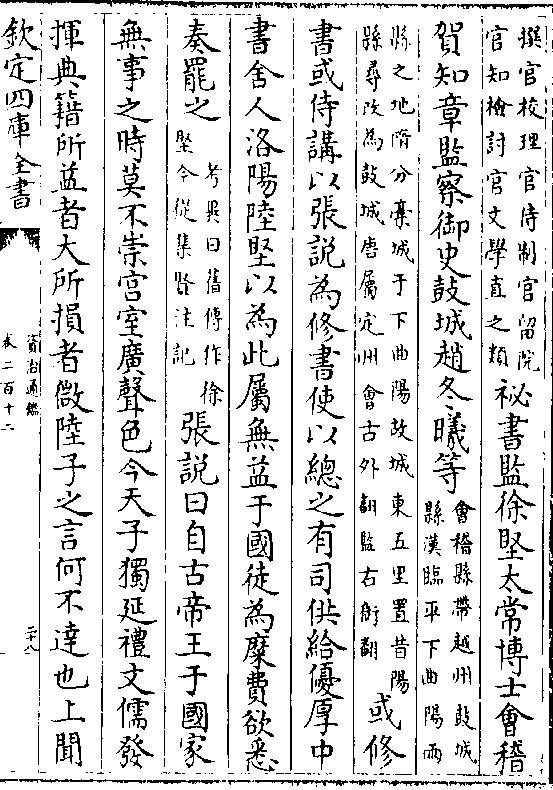 撰官校理官侍制官留院
官知檢討官文學直之類
祕書監徐堅太常博士會稽
賀知章監察御史鼓城趙冬曦等
會稽縣帶越州鼓城
縣漢臨平下曲陽兩
縣之地隋分藁城于下曲陽故城東五里置昔陽
縣尋改為鼓城唐屬定州會古外翻監右銜翻
或修
書或侍講以張說為修書使以總之有司供給優厚中
書舍人洛陽陸堅以為此屬無益于國徒為糜費欲悉
奏罷之
考異曰舊傳作徐
堅今從集賢注記
張說曰自古帝王于國家
無事之時莫不崇宮室廣聲色今天子獨延禮文儒發
揮典籍所益者大所損者微陸子之言何不達也上聞
欽定四庫全書
資治通鑑
卷二百十二
二十八